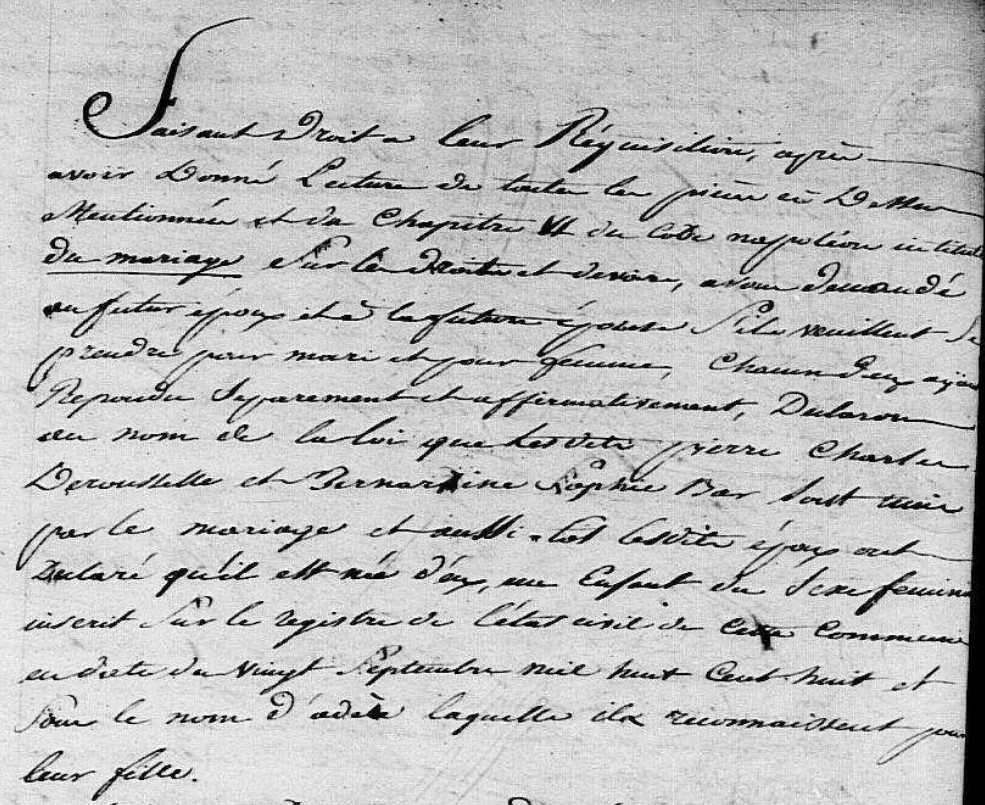 Faisant Droit a leur Réquisition, après
avoir Donné Lecture de toutes les pieces ci Dessus
Mentionnées et du Chapitre VI du Code napoléon intitulé
du mariage Sur les Droits et devoirs, avons demandé
au futur époux et à la future épouse S'ils veuillent Se
prendre pour mari et pour femme, Chacun d'eux ayant
Repondu Séparement et affirmativement, Declarons
au nom de la loi que Lesdits pierre Charles
Derousselle et Bernardine Sophie Bar Sont unis
par le mariage et aussi-tot lesdits époux ont
Declaré qu'il est né d'eux, un Enfant du Sexe feminin
inscrit Sur le registre de l'état civil de Cette Commune
en date du vingt Septembre mil huit Cent huit et
Sous le nom d'adèle laquelle ils reconnaissent pour
leur fille.